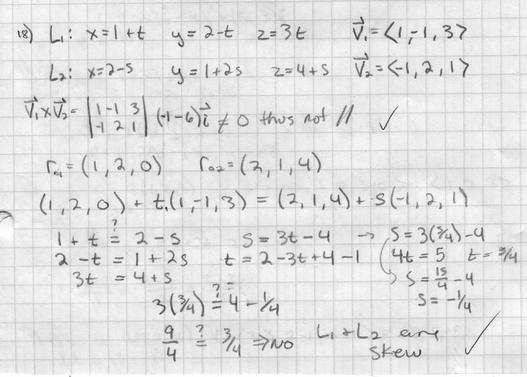 18) L₁: x=1+t y=2-t z=3t V⃗₁=<1,-1,3>
L₂: x=2-s y=1+2s z=4+s V⃗₂=<-1,2,1>
V⃗₁xV⃗₂= |1 -1 3| (-1-6)i⃗ ≠ 0 thus not // ✓
|-1 2 1|
r₀₁=(1,2,0) r₀₂=(2,1,4)
(1,2,0)+t,(1,-1,3)=(2,1,4)+s(-1,2,1)
1+t ≟ 2-s s=3t-4 → s=3(3/4)-4
2-t = 1+2s t=2-3t+4-1 4t=5 t=3/4
3t = 4+s s=15/4-4
3(3/4) ≟ 4-1/4 s=-1/4
9/4 ≟ 3/4 ⇒No L₁+L₂ are
skew ✓